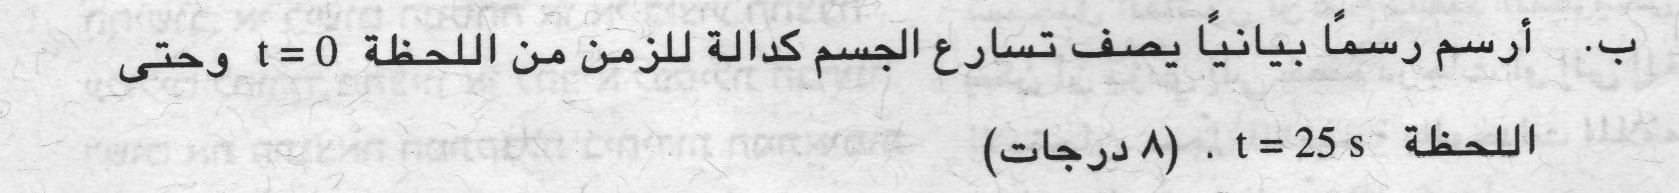 ب. أرسم رسمًا بيانيًا يصف تسارع الجسم كدالة للزمن من اللحظة t = 0 وحتى
اللحظة t = 25 s . (٨ درجات)